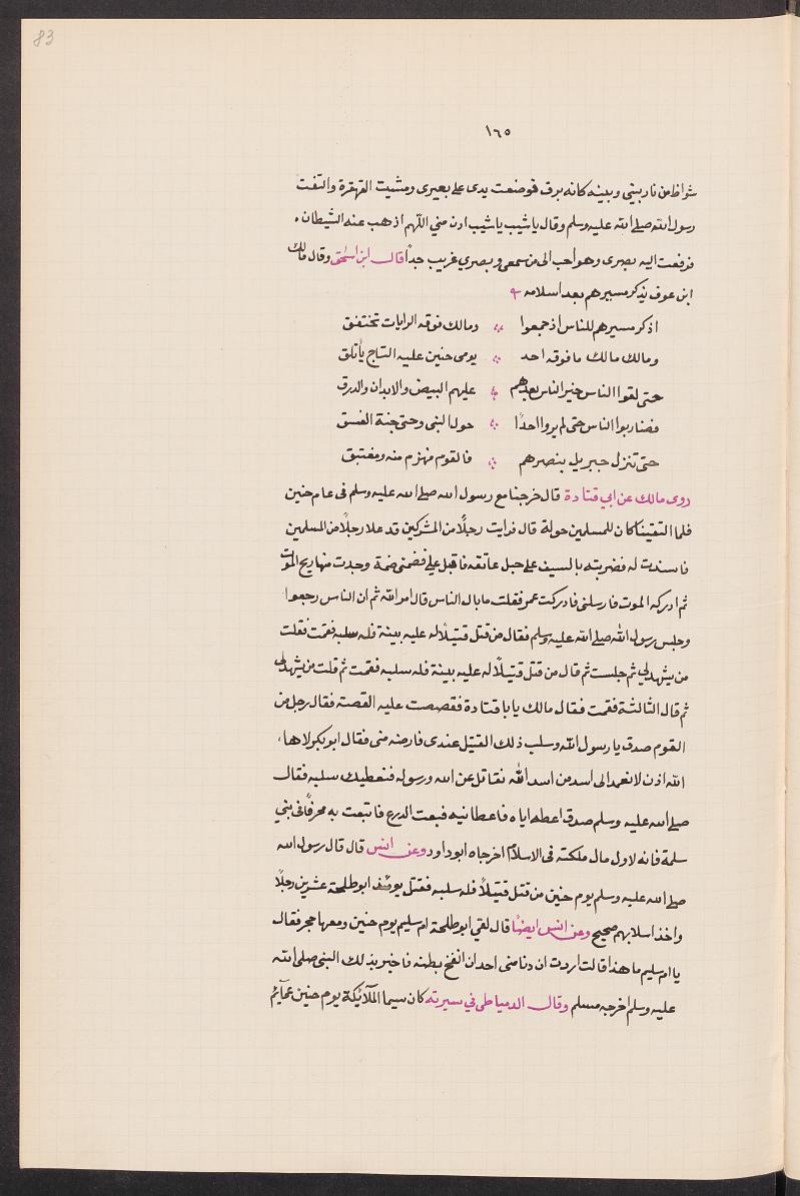 83
١٦٥
شواظ من نار بيني وبينه كانه برق فوضعت يدى على بصيرى ومشيت القهقرة والتفت
رسول الله صلى الله عليه وسلم وقال ياشيب ياشيب ادن مني اللهم اذهب عنه الشيطان
فرفعت اليه بصرى وهو احب الى من سمعى وبصري غريب جداً قال ابن اسحق وقال مالك
ابن عوف يذكر مسيرهم بعد اسلامه
اذكر مسيرهم للناس اذ جمعوا ومالك فوقه الرايات تختفق
ومالك مالك ما فوقه احد يومى حنين عليه التاج يأتلق
حتى لقوا الناس خير الناس يقدمهم عليهم البيض والابدان والدرق
فضاربوا الناس حتى لم يروا احدًا حول النبى وحتى جنة الغسق
حتى تنزل جبريل بنصرهم فالقوم منهزم منه ومعتبق
روى مالك عن ابي قتادة قال خرجنا مع رسول الله صلى الله عليه وسلم فى عام حنين
فلما التقينا كان للمسلمين جولة قال فرايت رجلاً من المشركين قد علا رجلاً من المسلمين
فاستدرت له فضربته بالسيف على حبل عاتقه فاقبل علي فضمنى ضمة وجدت منها ريح الموت
ثم ادركه الموت فارسلنى فادركت عمر فقلت ما بال الناس قال امر الله ثم ان الناس رجعوا
وجلس رسول الله صلى الله عليه وسلم فقال من قتل قتيلاً له عليه بينة فله سلبه فقمت فقلت
من يشهد لي ثم جلست ثم قال من قتل قتيلاً له عليه بينة فله سلبه فقمت ثم قلت من يشهد لى
ثم قال الثالثة فقمت فقال مالك يا ابا قتادة فقصصت عليه القصة فقال رجل من
القوم صدق يا رسول الله وسلب ذلك القتيل عندى فارضه منى فقال ابو بكر لا هاء
الله اذن لا نعمد الى اسد من اسد الله نقاتل عن الله ورسوله فنعطيك سلبه فقال
صلى الله عليه وسلم صدق اعطه اياه فاعطانيه فبعت الدرع فابتعت به مخرفًا فى بني
سلمة فانه لاول مال ملكته فى الاسلام اخرجاه ابو داود وعن انس قال قال رسول الله
صلى الله عليه وسلم يوم حنين من قتل قتيلاً فله سلبه فقتل يومئذ ابو طلحة عشرين رجلاً
واخذ اسلابهم صحيح وعن انس ايضًا قال لقي ابو طلحة ام سليم يوم حنين ومعها خنجر فقال
يا ام سليم ما هذا قالت اردت ان دنا منى احد ان ابعج بطنه فاخبر بذلك النبى صلى الله
عليه وسلم اخرجه مسلم وقال الدمياطى في سيرته كان سيما الملائكة يوم حنين عمائم